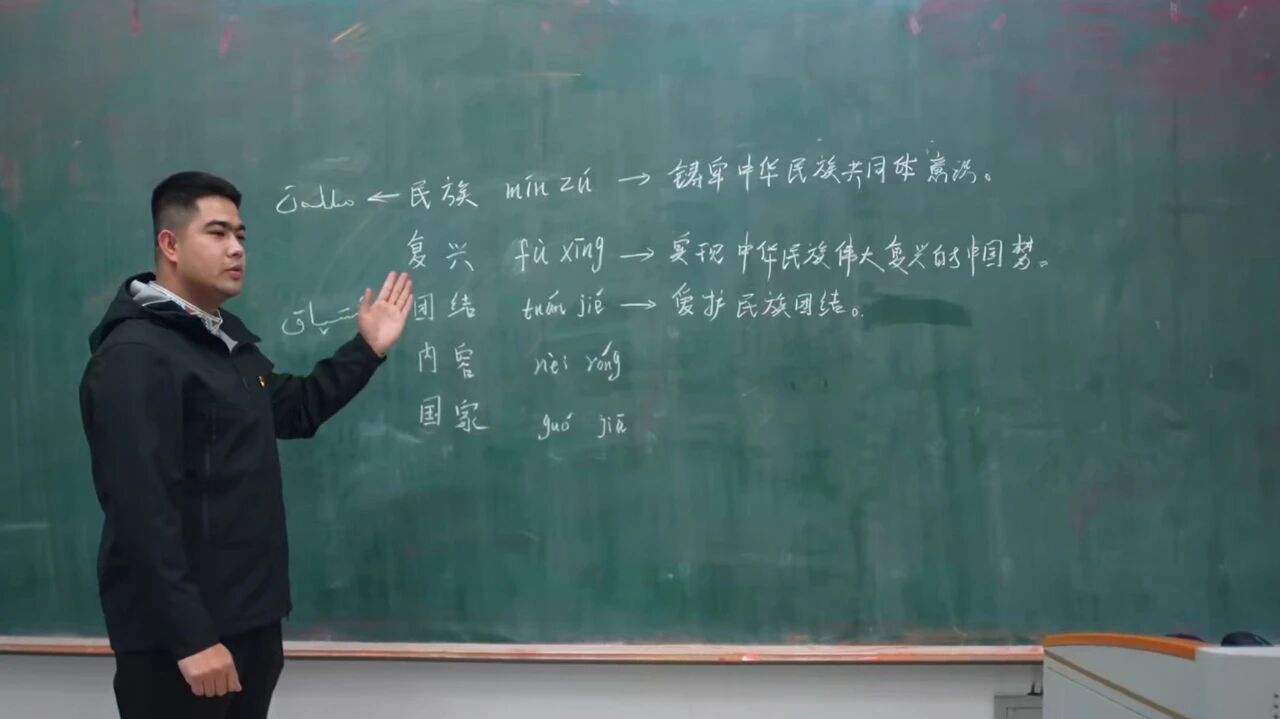 ← 民族 mín zú → 铸牢中华民族共同体意识。
复兴 fù xīng → 实现中华民族伟大复兴的中国梦。
团结 tuán jié → 爱护民族团结。
内容 nèi róng
国家 guó jiā